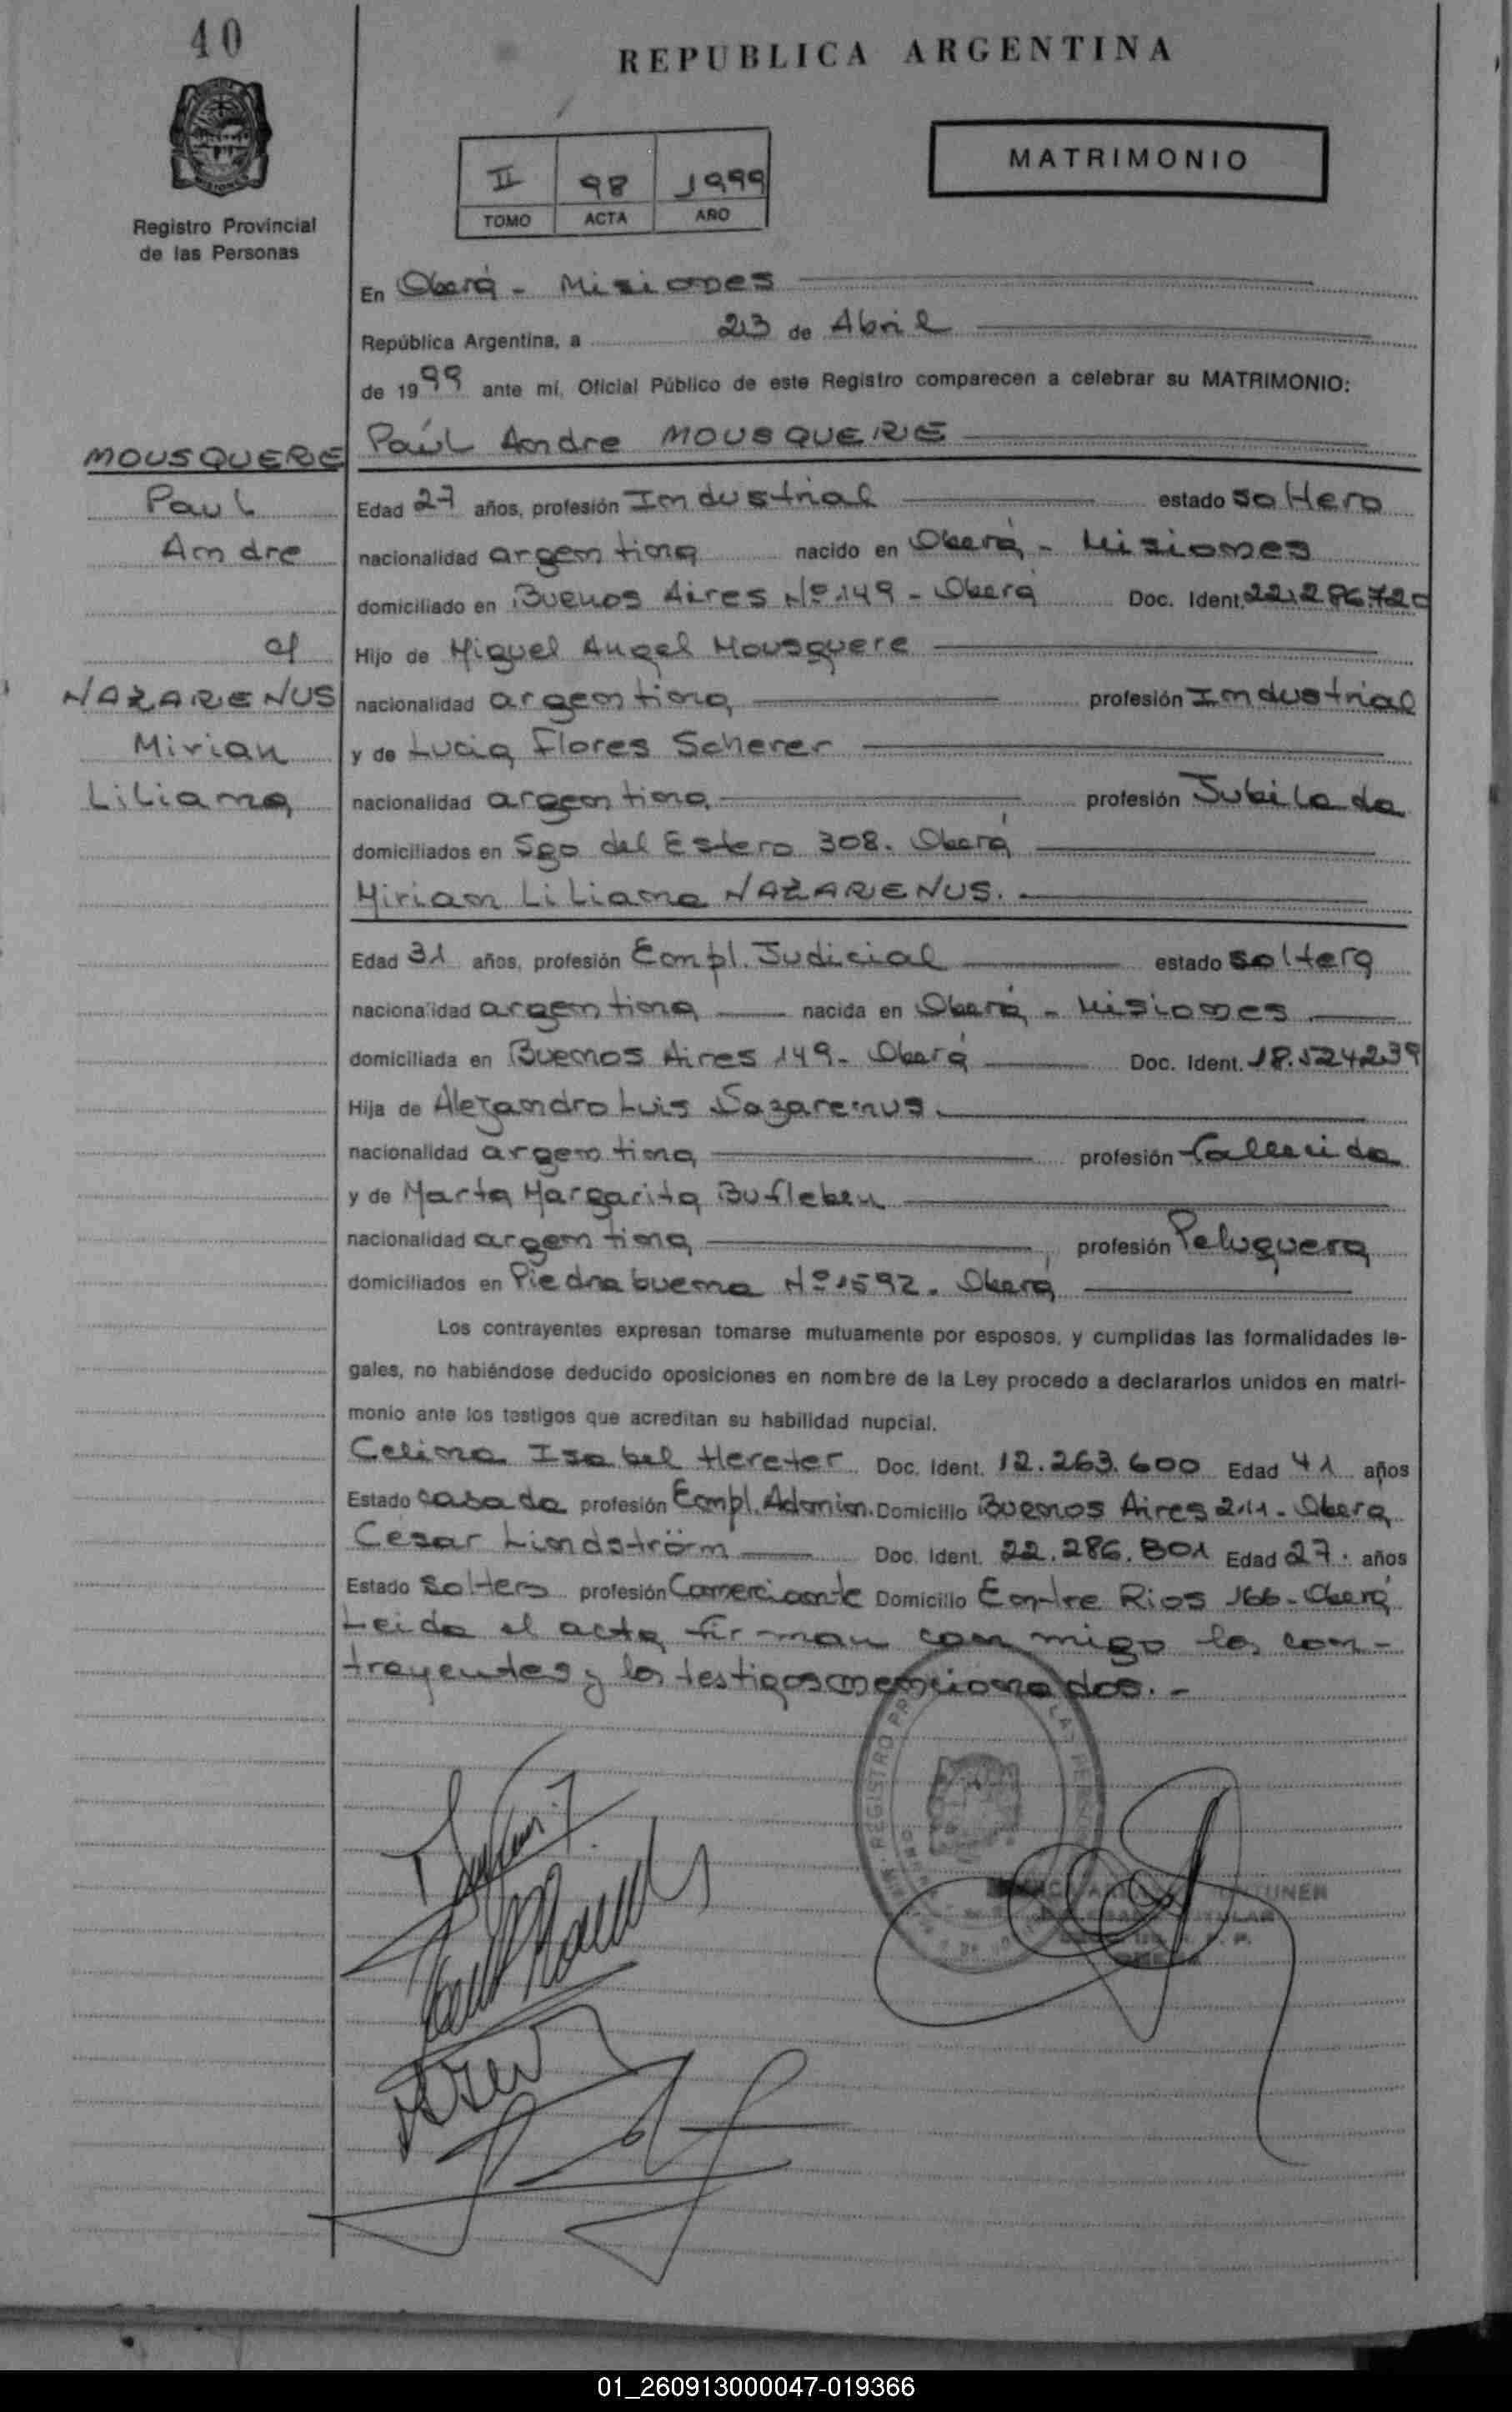 40
REPUBLICA ARGENTINA
II 98 1999
TOMO ACTA AÑO
MATRIMONIO
Registro Provincial
de las Personas
En Oberá - Misiones
República Argentina, a 23 de Abril
de 1999 ante mí, Oficial Público de este Registro comparecen a celebrar su MATRIMONIO:
Paúl Andre MOUSQUERE
MOUSQUERE
Paul
Andre
c/
NAZARENUS
Mirian
Liliana
Edad 27 años, profesión Industrial estado soltero
nacionalidad argentina nacido en Oberá - Misiones
domiciliado en Buenos Aires Nº 149 - Oberá Doc. Ident. 22.286.720
Hijo de Miguel Angel Mousquere
nacionalidad argentina profesión Industrial
y de Lucia Flores Scherer
nacionalidad argentina profesión Jubilada
domiciliados en Sgo del Estero 308. Oberá
Miriam Liliana NAZARENUS.
Edad 31 años, profesión Empl. Judicial estado soltera
nacionalidad argentina nacida en Oberá - Misiones
domiciliada en Buenos Aires 149 - Oberá Doc. Ident. 18.524239
Hija de Alejandro Luis Nazarenus.
nacionalidad argentina profesión Fallecido
y de Marta Margarita Bufleben
nacionalidad argentina profesión Peluquera
domiciliados en Piedrabuena Nº 1592. Oberá
Los contrayentes expresan tomarse mutuamente por esposos, y cumplidas las formalidades le-
gales, no habiéndose deducido oposiciones en nombre de la Ley procedo a declararlos unidos en matri-
monio ante los testigos que acreditan su habilidad nupcial.
Celina Isabel Hereter Doc. Ident. 12.263.600 Edad 41 años
Estado casada profesión Empl. Admin. Domicilio Buenos Aires 211 - Oberá
César Lindström Doc. Ident. 22.286.801 Edad 27. años
Estado Soltero profesión Comerciante Domicilio Entre Rios 166 - Oberá
Leida el acta firman conmigo los con-
trayentes y los testigos mencionados. -
REGISTRO
01_260913000047-019366